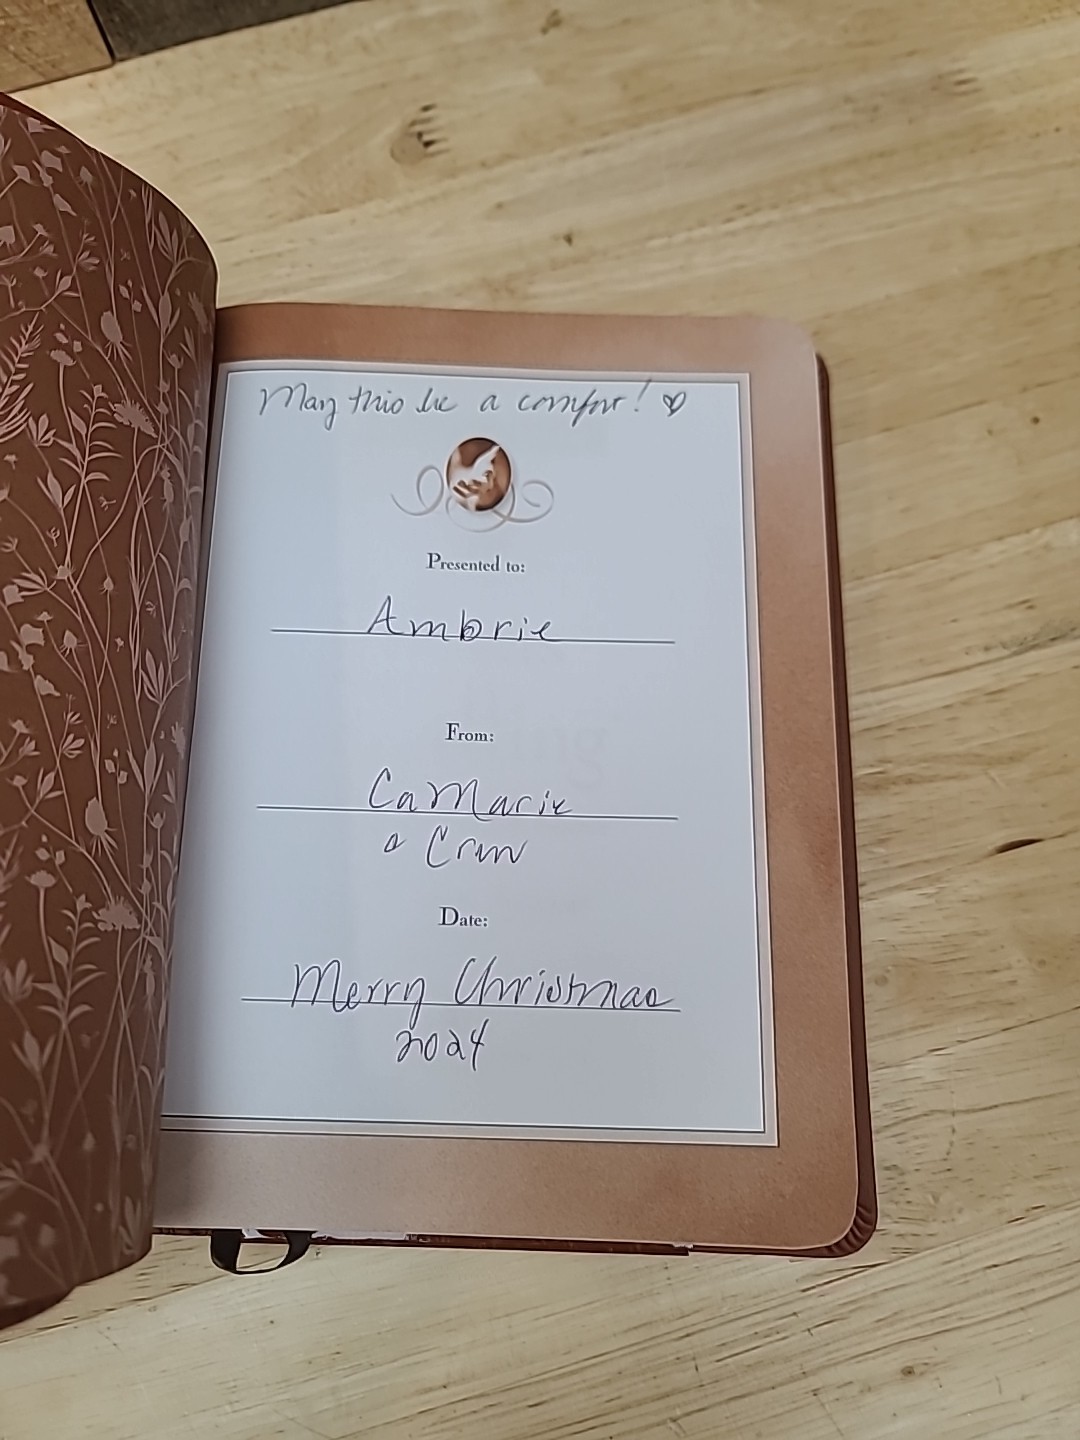 May this be a comfort! ♡
Presented to:
Ambrie
From:
CaMarie
& Crew
Date:
Merry Christmas
2024